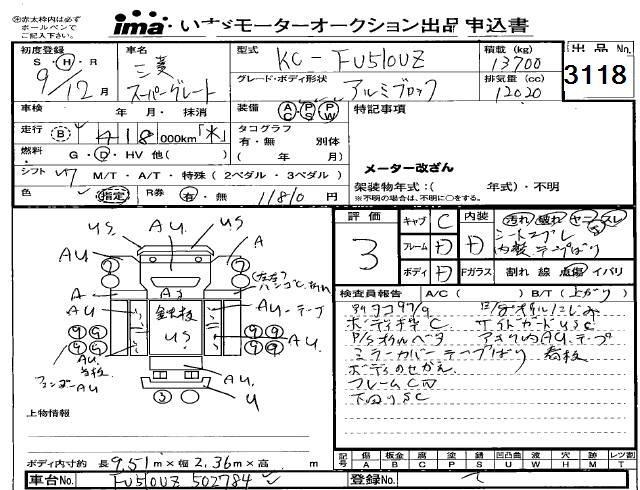 ㊟赤太枠内は必ず
ボールペンで
ご記入下さい。
ima いすゞモーターオークション出品申込書
初度登録
S・H・R
9/12月
車名
三菱
スーパーグレート
型式
KC-FU510UZ
グレード・ボディ形状
アルミブロック
積載(kg)
13700
排気量(cc)
12020
出品No.
3118
車検 年・月・抹消
走行 B 418 000km「米」
燃料 G・D・HV 他( )
シフト 7 M/T・A/T・特殊(2ペダル・3ペダル)
色 指定
R券 有・無 11810円
装備 AC・PS・PW
タコグラフ
有・無 別体
( 年 月)
特記事項
メーター改ざん
架装物年式:( 年式)・不明
※不明の場合は、不明に○をする。
評価
3
キャブ C
フレーム D
ボディ D
内装 D
汚れ 破れ ヤニ スレ
シートコゲレ
内装テープばり
Fガラス 割れ 線 点傷 イバリ
検査員報告 A/C( ) B/T(上がり)
ボディ手直C サイドガードUSC
P/Sオイルベタ
ミラーカバーテープばり 看板
ボディのせかえ
フレームCW
下回りSC
US
AU
US
AU
A
A
A3
AU
鉄板
US
AU-テープ
AU
AU
看板
フェンダーAU
AU
AU
U
③
上物情報
ボディ内寸約 長9.51m×幅2.36m×高 m
記号 傷A 板金B 腐C 塗P 錆S 凹凸曲U 波W 穴H メM 跡T レツ割R
車台No. FU510UZ 502784
登録No.